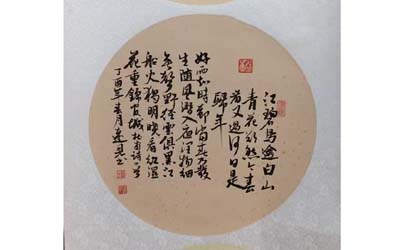 江碧鳥逾白山
青花欲然今春
看又過何日是
歸年
好雨知时节当春乃發
生随風潜入夜润物细
無聲野徑雲俱黑江
船火独明晓看红湿
花重錦官城杜甫诗二首
丁酉年春月